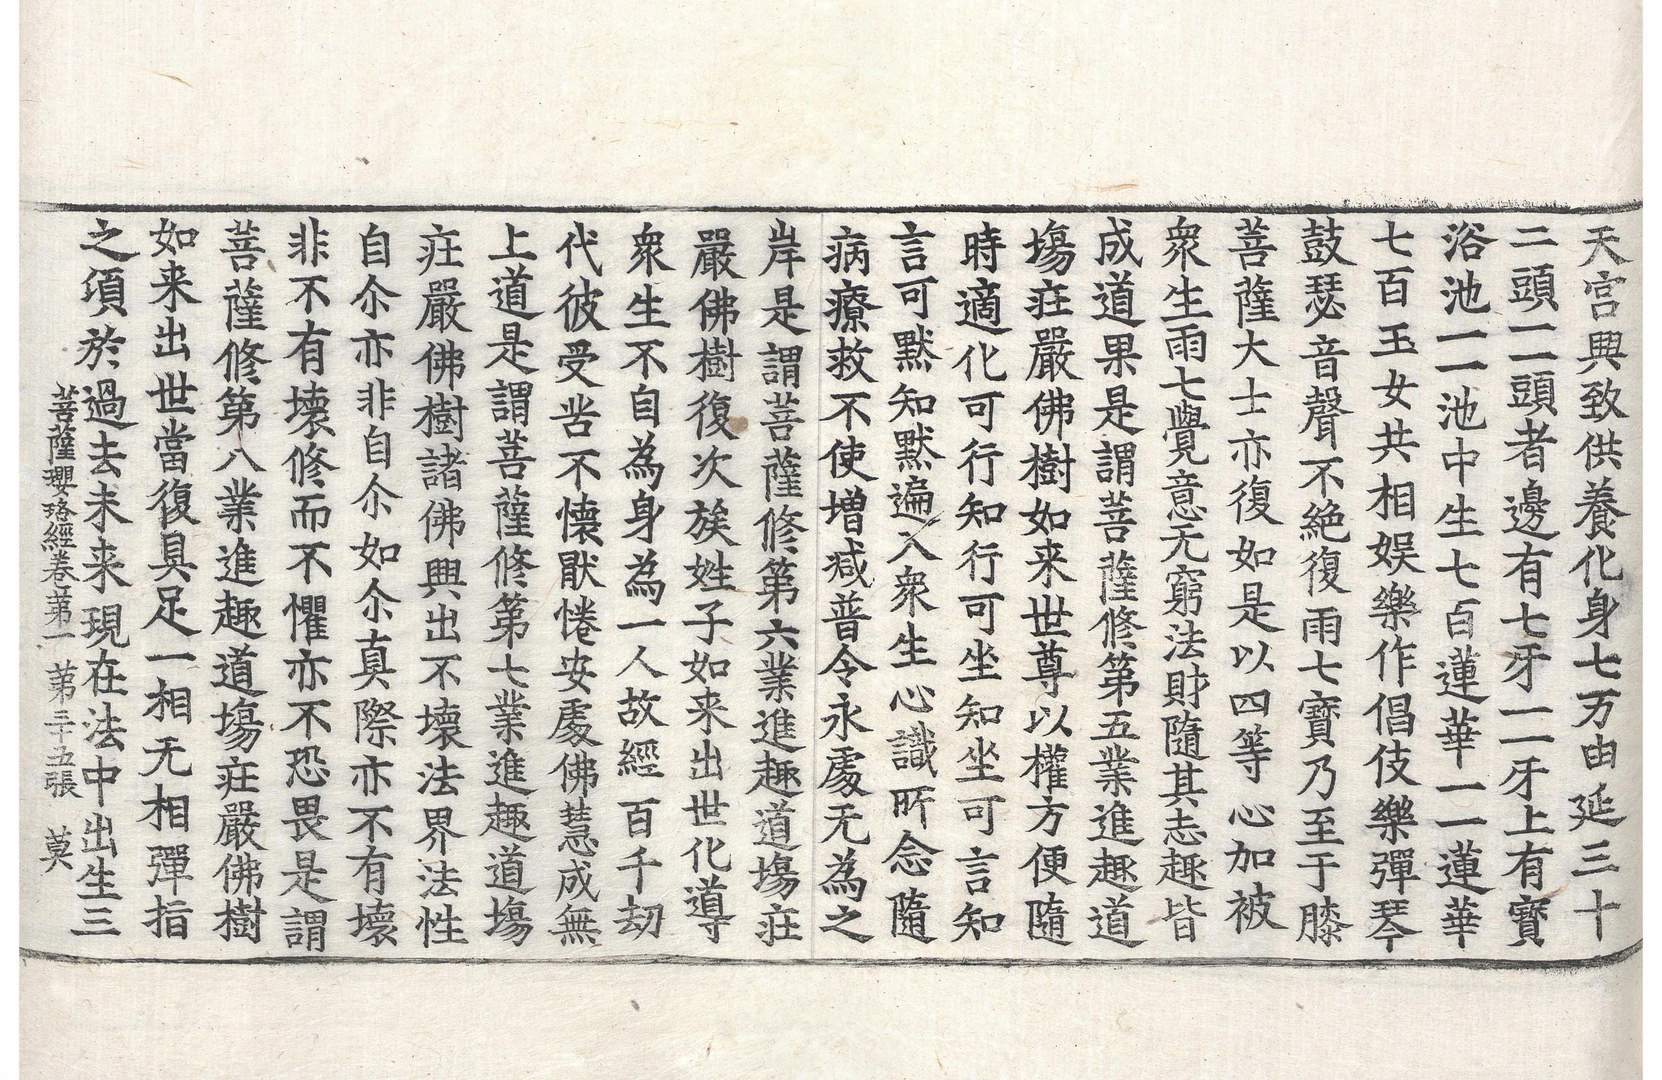 天宫興致供養化身七万由延三十
二頭一一頭者邊有七牙一一牙上有寶
浴池一一池中生七百蓮華一一蓮華
七百玉女共相娱樂作倡伎樂彈琴
鼓瑟音聲不絶復雨七寶乃至于膝
菩薩大士亦復如是以四等心加被
衆生雨七覺意无窮法財隨其志趣皆
成道果是謂菩薩修第五業進趣道
塲莊嚴佛樹如来世尊以權方便隨
時適化可行知行可坐知坐可言知
言可黙知黙遍入衆生心識所念隨
病療救不使増减普令永處无為之
岸是謂菩薩修第六業進趣道塲莊
嚴佛樹復次族姓子如来出世化導
衆生不自為身為一人故經百千劫
代彼受苦不懐猒惓安處佛慧成無
上道是謂菩薩修第七業進趣道塲
莊嚴佛樹諸佛興出不壞法界法性
自尒亦非自尒如尒真際亦不有壞
非不有壞修而不懼亦不恐畏是謂
菩薩修第八業進趣道塲莊嚴佛樹
如来出世當復具足一相无相彈指
之須於過去未来現在法中出生三
菩薩瓔珞經卷第一 第三十五張 莫